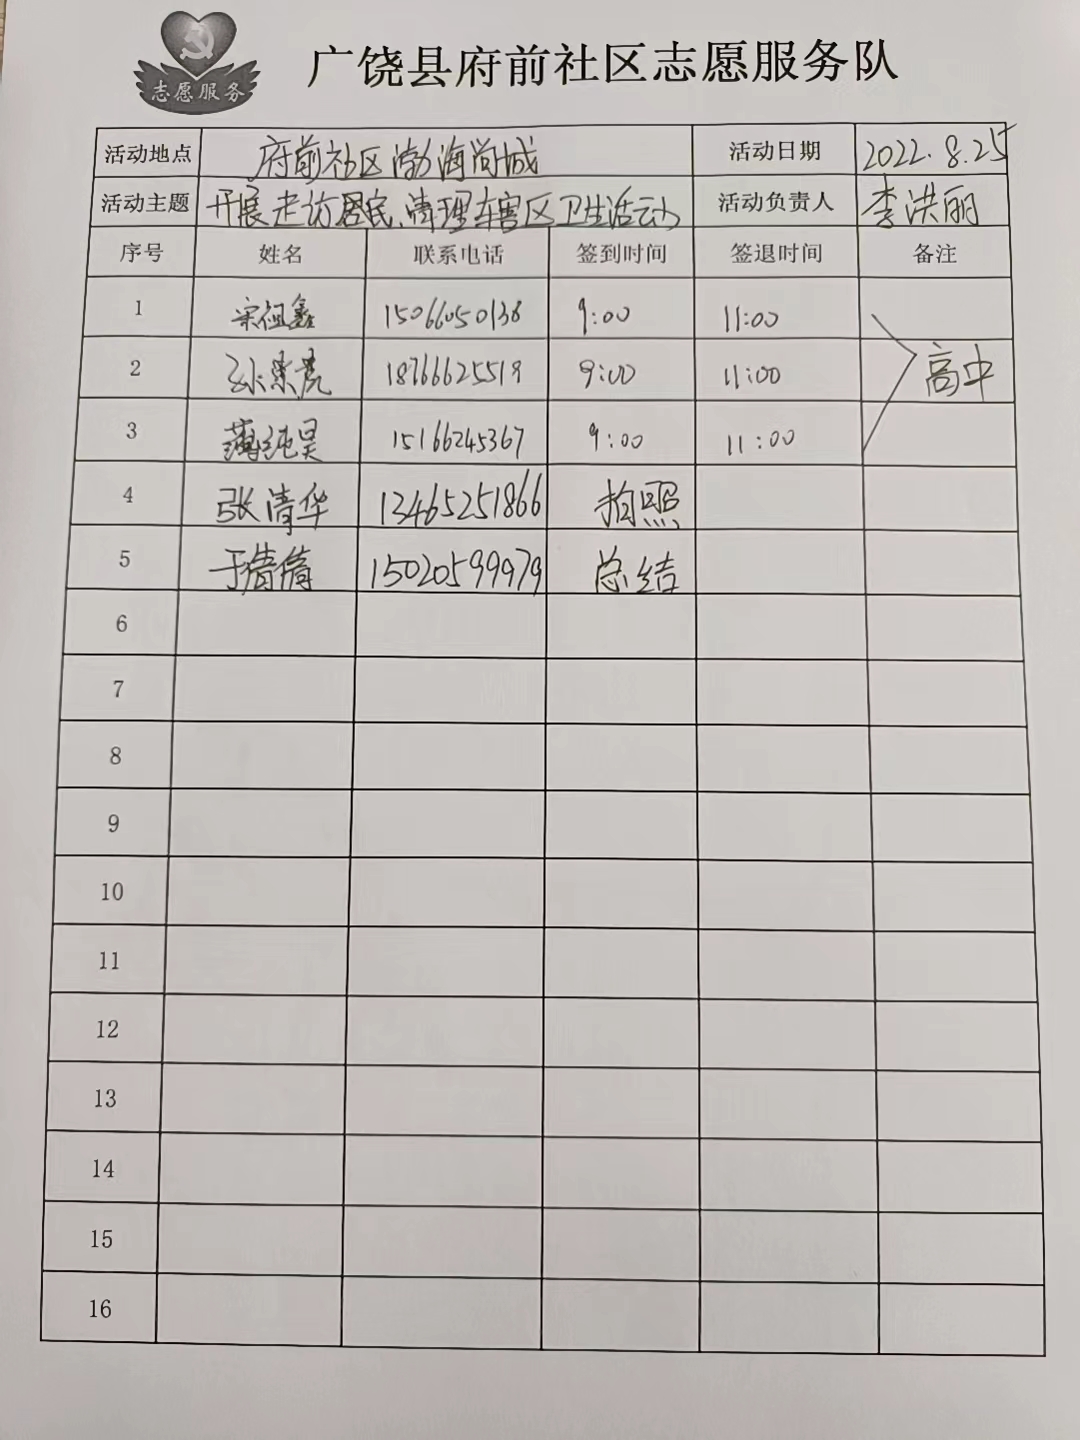 志愿服务
广饶县府前社区志愿服务队
活动地点 府前社区渤海尚城 活动日期 2022.8.25
活动主题 开展走访居民、清理辖区卫生活动 活动负责人 李洪丽
序号 姓名 联系电话 签到时间 签退时间 备注
1 宋祖鑫 15066050138 9:00 11:00
2 孙荣虎 18766625519 9:00 11:00 高中
3 薄纯昊 15166245367 9:00 11:00
4 张清华 13465251866 拍照
5 于倩倩 15020599979 总结
6
7
8
9
10
11
12
13
14
15
16